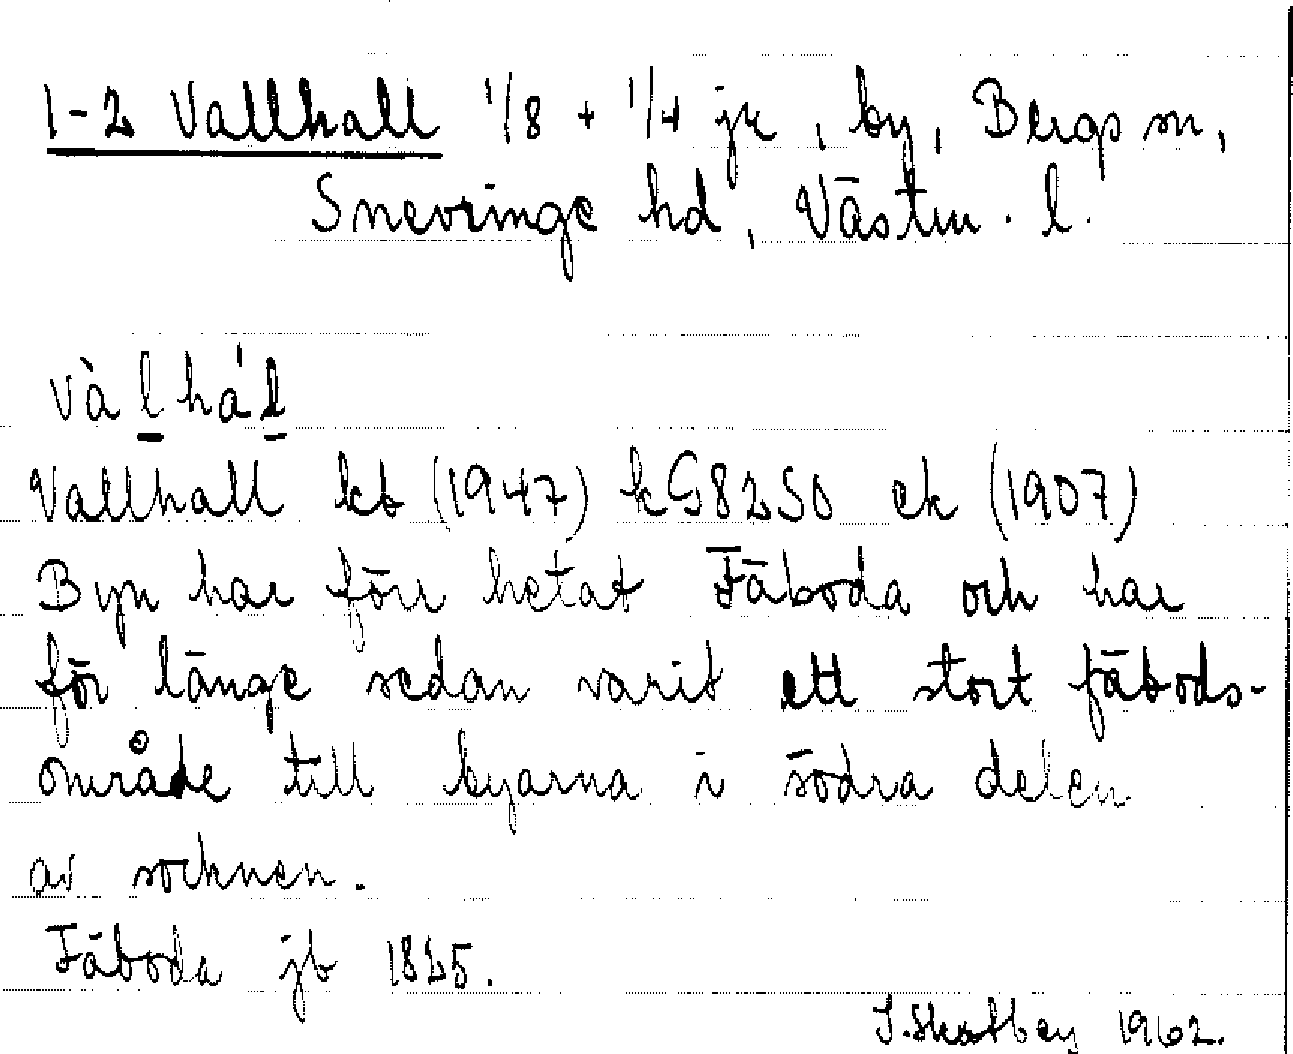 1-2 Vallhall 1/8 + 1/4 jk, by, Bergs sn,
Snevringe hd, Västm. l.
vàl̲há'l̲
Vallhall kb (1947) kG8250 ek (1907)
Byn har förr hetat Fäboda och har
för länge sedan varit ett stort fäbods-
område till byarna i södra delen
av socknen.
Fäboda jb 1825.
1962.